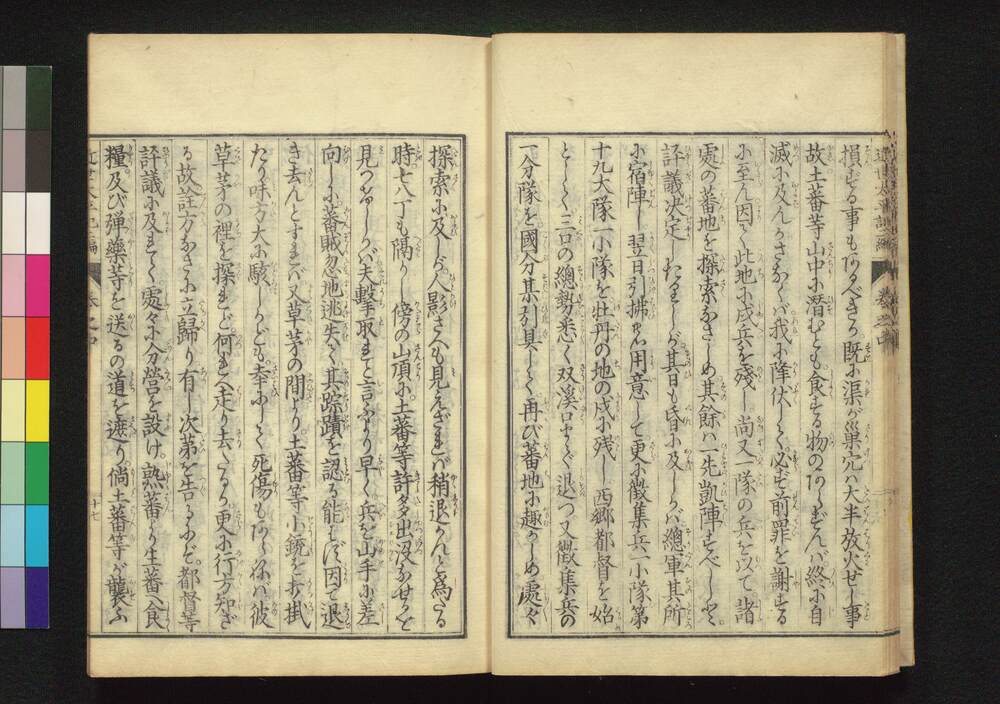 損ずる事もあるべきる既に渠が巣穴ハ大半放火せし事
故土蕃等山中に潜むとも食する物のあらずんバ終に自
滅に及んかさなくバ我に降伏して必ず前罪を謝する
に至ん因て此地に戍兵を残し尚又一隊の兵を以て諸
處の蕃地を探索なさしめ其餘ハ一先凱陣すべしと
評議决定したりしが其日も昏に及しかバ總軍其所
に宿陣し翌日引拂の用意して更に徴集兵一小隊第
十九大隊一小隊を牡丹の地の戍に残し西郷都督を始
として三口の總勢悉く双溪口まで退つ又徴集兵の
一分隊を國分某引具して再び蕃地に趣かしめ處々
探索に及しが人影さへも見えざれバ稍退かんと爲たる
時七八丁も隔りし傍の山頂に土蕃等許多出没なせるを
見つけしかバ夫撃取れと言ふより早く兵を山手に差
向しに蕃賊忽地逃失て其踪蹟を認る能はず因て退
き去んとすれバ又草茅の間より土蕃等小銃を打掛
たり味方大に駭しかども幸にして死傷もあらねバ彼
草茅の裡を探れど何れへ走り去たるか更に行方知ざ
る故詮方なさに立歸り有し次第を告るにぞ都督等
評議に及れて處々に分營を設け熟蕃より生蕃へ食
糧及び弾藥等を送るの道を遮り倘土蕃等が襲ふ